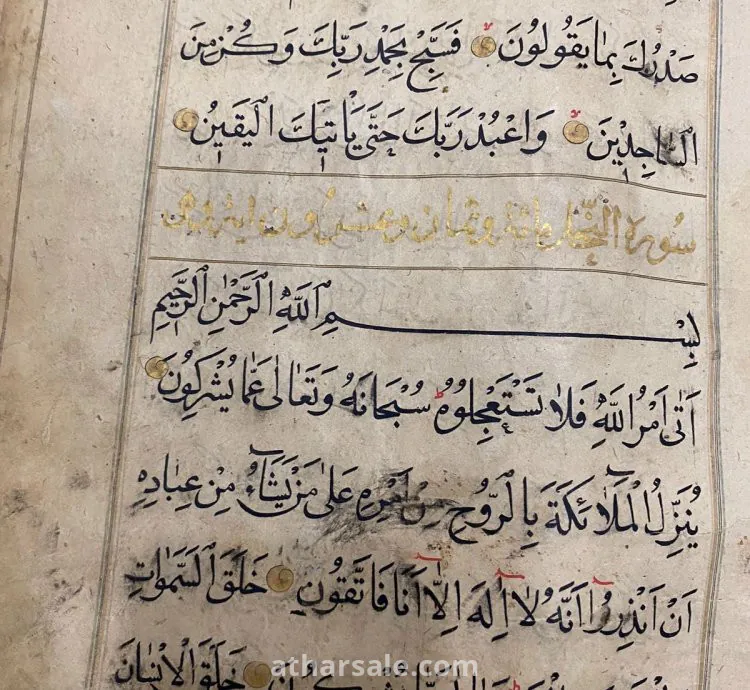 صَدْرُكَ بِمَا يَقُولُونَ فَسَبِّحْ بِحَمْدِ رَبِّكَ وَكُنْ مِنَ
السَّاجِدِينَ وَاعْبُدْ رَبَّكَ حَتَّى يَأْتِيَكَ الْيَقِينُ
سورة النحل مائة وثمان وعشرون اية وهي
بِسْمِ اللَّهِ الرَّحْمَٰنِ الرَّحِيمِ
أَتَى أَمْرُ اللَّهِ فَلَا تَسْتَعْجِلُوهُ سُبْحَانَهُ وَتَعَالَى عَمَّا يُشْرِكُونَ
يُنَزِّلُ الْمَلَائِكَةَ بِالرُّوحِ مِنْ أَمْرِهِ عَلَى مَنْ يَشَاءُ مِنْ عِبَادِهِ
أَنْ أَنْذِرُوا أَنَّهُ لَا إِلَهَ إِلَّا أَنَا فَاتَّقُونِ خَلَقَ السَّمٰوَاتِ
خَلَقَ الْإِنْسَانَ
atharsale.com